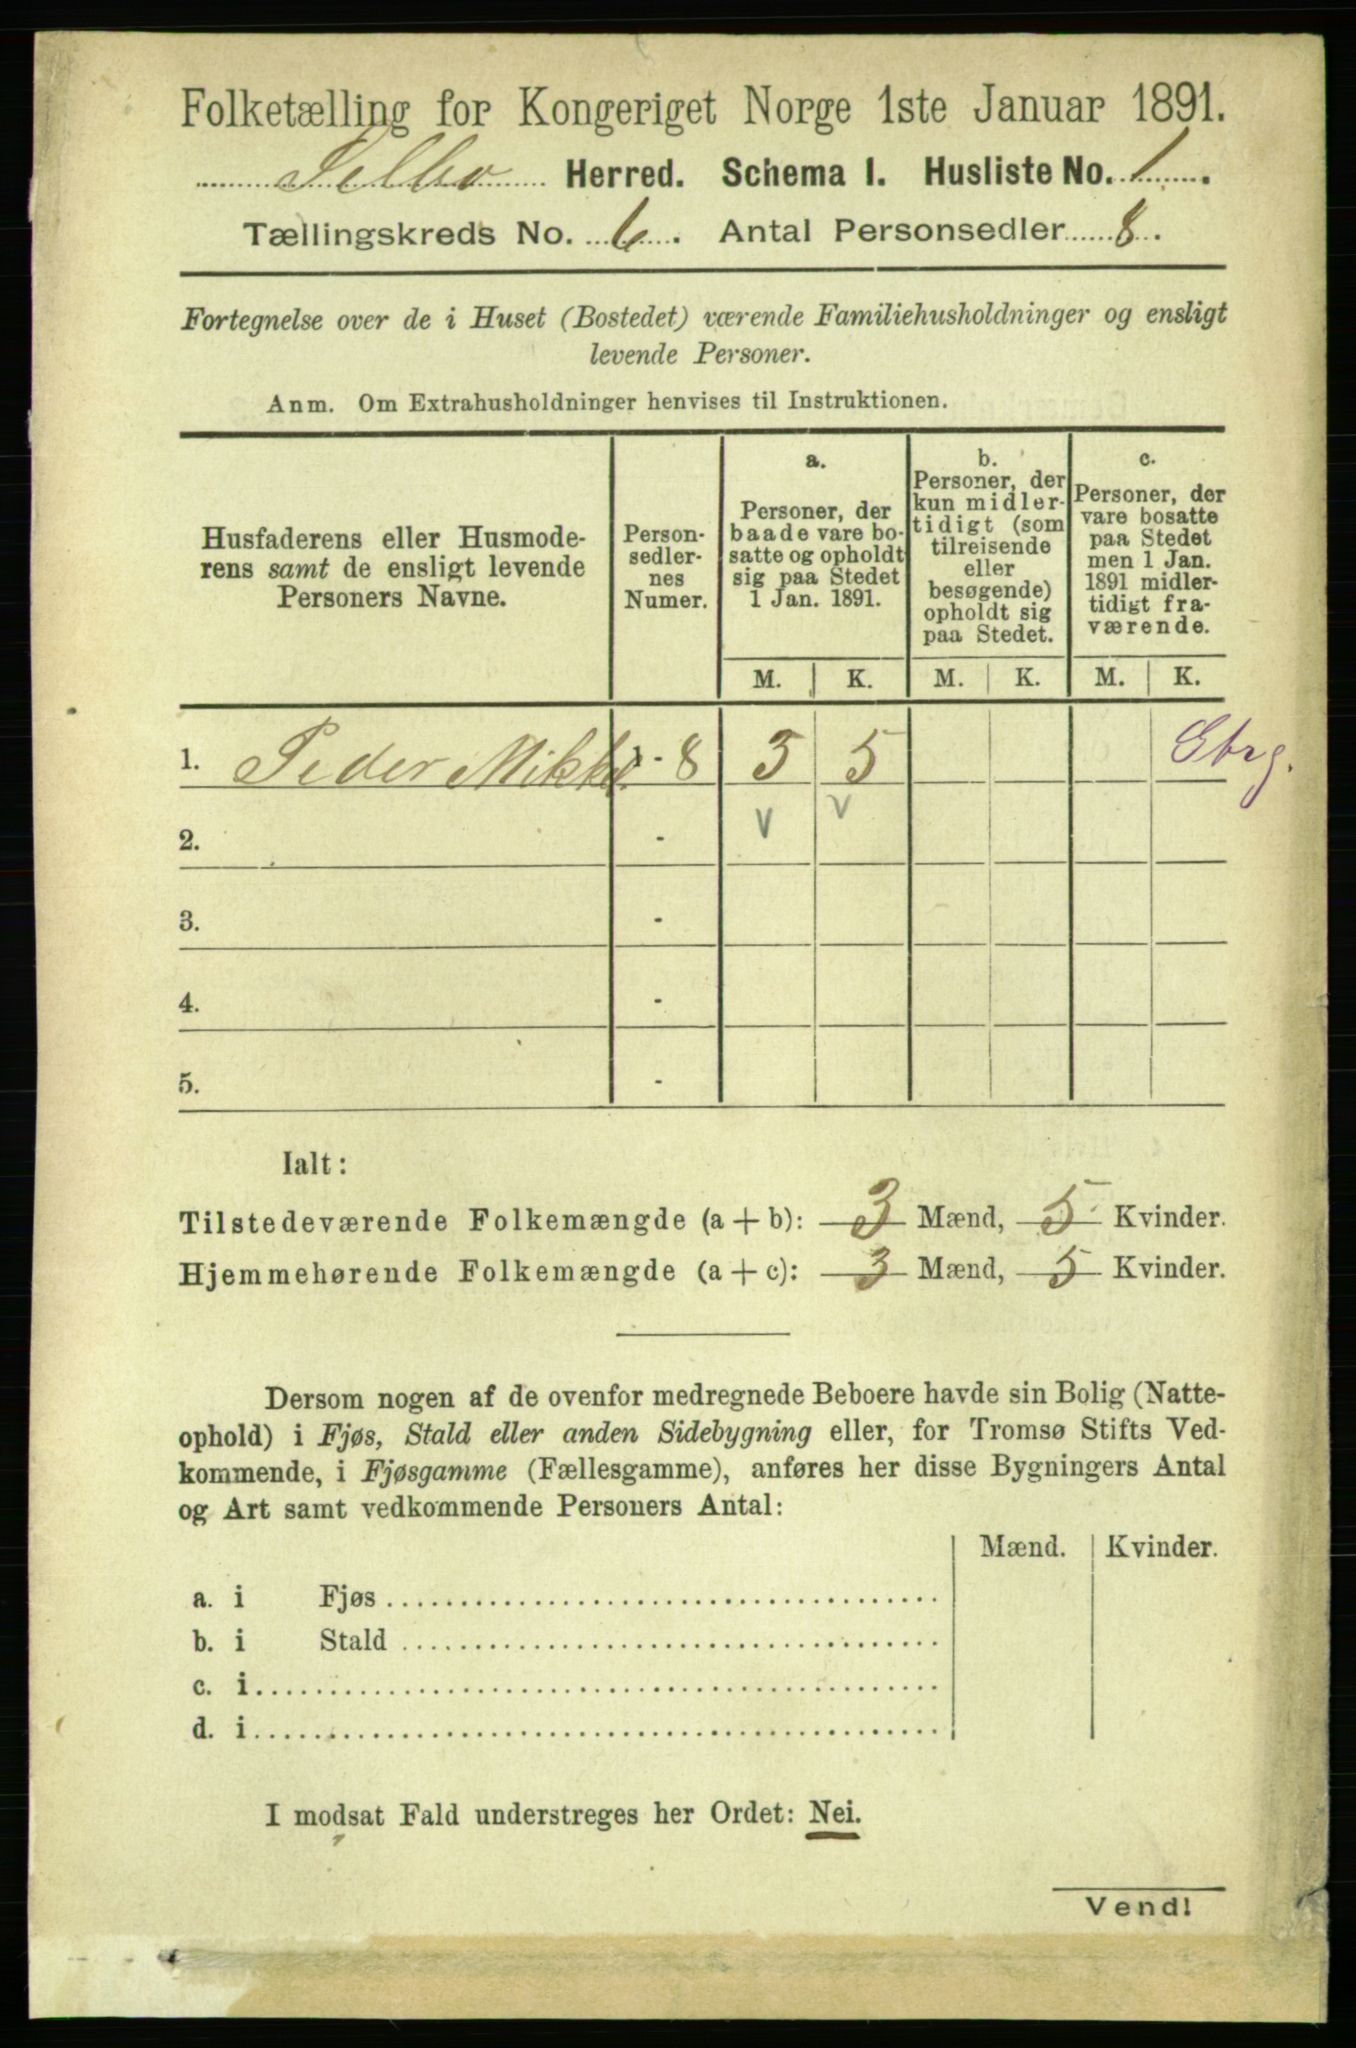 Folketælling for Kongeriget Norge 1ste Januar 1891.
Selbo Herred. Schema I. Husliste No. 1.
Tællingskreds No. 6. Antal Personsedler 8.
Fortegnelse over de i Huset (Bostedet) værende Familiehusholdninger og ensligt
levende Personer.
Anm. Om Extrahusholdninger henvises til Instruktionen.
Husfaderens eller Husmode-
rens samt de ensligt levende
Personers Navne.
Person-
sedler-
nes
Numer.
a.
Personer, der
baade vare bo-
satte og opholdt
sig paa Stedet
1 Jan. 1891.
b.
Personer, der
kun midler-
tidigt (som
tilreisende
eller
besøgende)
opholdt sig
paa Stedet.
c.
Personer, der
vare bosatte
paa Stedet
men 1 Jan.
1891 midler-
tidigt fra-
værende.
M. K. M. K. M. K.
1. Peder 1 - 8 3 5
2. - v v
3. -
4. -
5. -
Ialt:
Tilstedeværende Folkemængde (a + b): 3 Mænd, 5 Kvinder.
Hjemmehørende Folkemængde (a + c): 3 Mænd, 5 Kvinder.
Dersom nogen af de ovenfor medregnede Beboere havde sin Bolig (Natte-
ophold) i Fjøs, Stald eller anden Sidebygning eller, for Tromsø Stifts Ved-
kommende, i Fjøsgamme (Fællesgamme), anføres her disse Bygningers Antal
og Art samt vedkommende Personers Antal:
Mænd. Kvinder.
a. i Fjøs
b. i Stald
c. i
d. i
I modsat Fald understreges her Ordet: Nei.
Vend!